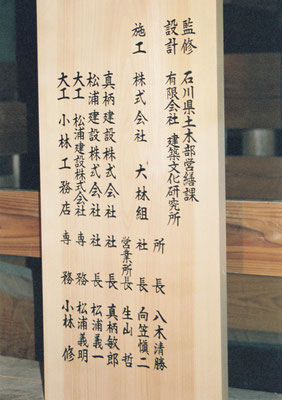 監修 石川県土木部営繕課
設計 有限会社 建築文化研究所 所長 八木清勝
施工 株式会社 大林組 社長 向笠愼二
営業所長 生山哲
真柄建設株式会社 社長 真柄敏郎
松浦建設株式会社 社長 松浦義一
大工 松浦建設株式会社 専務 松浦義明
大工 小林工務店 専務 小林修